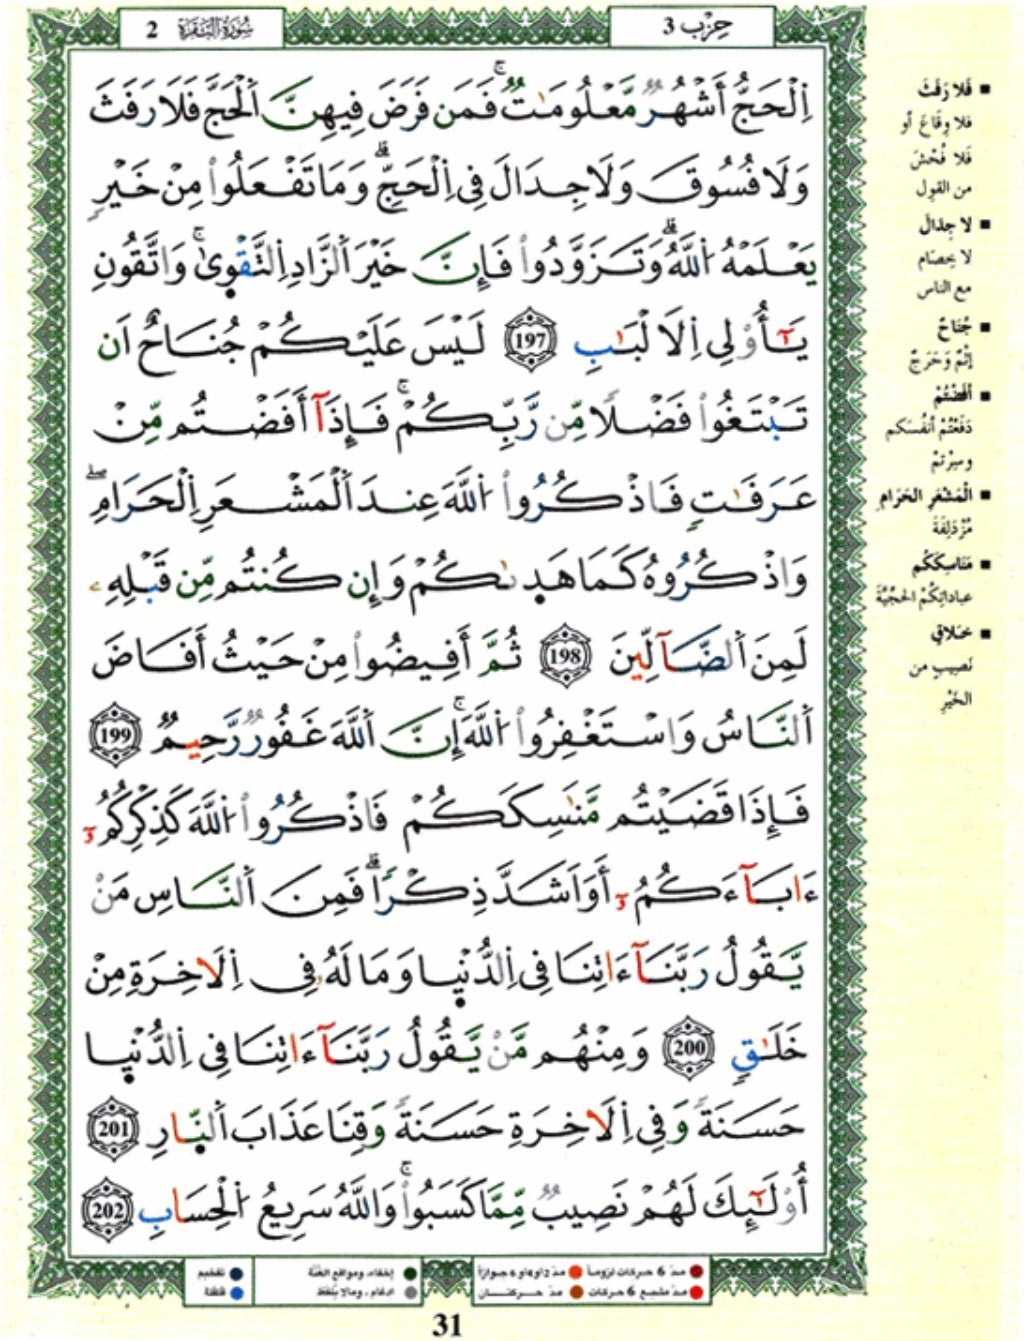 حِزْب 3
سُورَةُ البَقَرَة 2
اِ۬لْحَجُّ أَشْهُرٌ مَّعْلُومَٰتٌ ۚ فَمَن فَرَضَ فِيهِنَّ اَ۬لْحَجَّ فَلَا رَفَثَ
وَلَا فُسُوقَ وَلَا جِدَالَ فِي اِ۬لْحَجِّ ۗ وَمَا تَفْعَلُوا۟ مِنْ خَيْرٖ
يَعْلَمْهُ اُ۬للَّهُ ۗ وَتَزَوَّدُوا۟ فَإِنَّ خَيْرَ اَ۬لزَّادِ اِ۬لتَّقْو۪ىٰ ۚ وَاتَّقُونِ
يَٰٓأُوْلِي اِ۬لَالْبَٰبِ 197 لَيْسَ عَلَيْكُمْ جُنَاحٌ اَن
تَبْتَغُوا۟ فَضْلًا مِّن رَّبِّكُمْ ۚ فَإِذَآ أَفَضْتُم مِّنْ
عَرَفَٰتٖ فَاذْكُرُوا۟ اُ۬للَّهَ عِندَ اَ۬لْمَشْعَرِ اِ۬لْحَرَامِ ۖ
وَاذْكُرُوهُ كَمَا هَد۪ىٰكُمْ وَإِن كُنتُم مِّن قَبْلِهِۦ
لَمِنَ اَ۬لضَّآلِّينَ 198 ثُمَّ أَفِيضُوا۟ مِنْ حَيْثُ أَفَاضَ
اَ۬لنَّاسُ وَاسْتَغْفِرُوا۟ اُ۬للَّهَ ۚ إِنَّ اَ۬للَّهَ غَفُورٌ رَّحِيمٌ 199
فَإِذَا قَضَيْتُم مَّنَٰسِكَكُمْ فَاذْكُرُوا۟ اُ۬للَّهَ كَذِكْرِكُمُۥٓ
ءَابَآءَكُمُۥٓ أَوَ اَشَدَّ ذِكْرًا ۗ فَمِنَ اَ۬لنَّاسِ مَنْ
يَّقُولُ رَبَّنَآ ءَاتِنَا فِي اِ۬لدُّنْي۪ا وَمَا لَهُۥ فِي اِ۬لَاخِرَةِ مِنْ
خَلَٰقٖ 200 وَمِنْهُم مَّنْ يَّقُولُ رَبَّنَآ ءَاتِنَا فِي اِ۬لدُّنْي۪ا
حَسَنَةً وَفِي اِ۬لَاخِرَةِ حَسَنَةً وَقِنَا عَذَابَ اَ۬لنّ۪ارِ 201
أُوْلَٰٓئِكَ لَهُمْ نَصِيبٌ مِّمَّا كَسَبُوا۟ ۚ وَاللَّهُ سَرِيعُ اُ۬لْحِسَابِ 202
■ فَلا رَفَثَ
فلا وِقَاعَ أو
فَلا فُحْشَ
من القول
■ لا جِدَالَ
لا خِصَام
مع الناس
■ جُنَاحٌ
إثْمٌ وَحَرَجٌ
■ أفَضْتُمْ
دَفَعْتُمْ أنفُسَكم
وسِرْتمْ
■ الْمَشْعَرِ الحَرَامِ
مُزْدَلِفَةَ
■ مَنَاسِكَكُم
عباداتِكُمْ الحَجِّيَّةَ
■ خَلَاقٍ
نَصِيبٍ من
الخَيْرِ
مدّ 6 حركات لزوماً
مدّ 2 أو 4 أو 6 جوازاً
إخفاء، ومواقع الغُنَّة
تفخيم
مدّ مشبع 6 حركات
مدّ حركتان
ادغام، ومالا يُلفظ
قلقلة
31